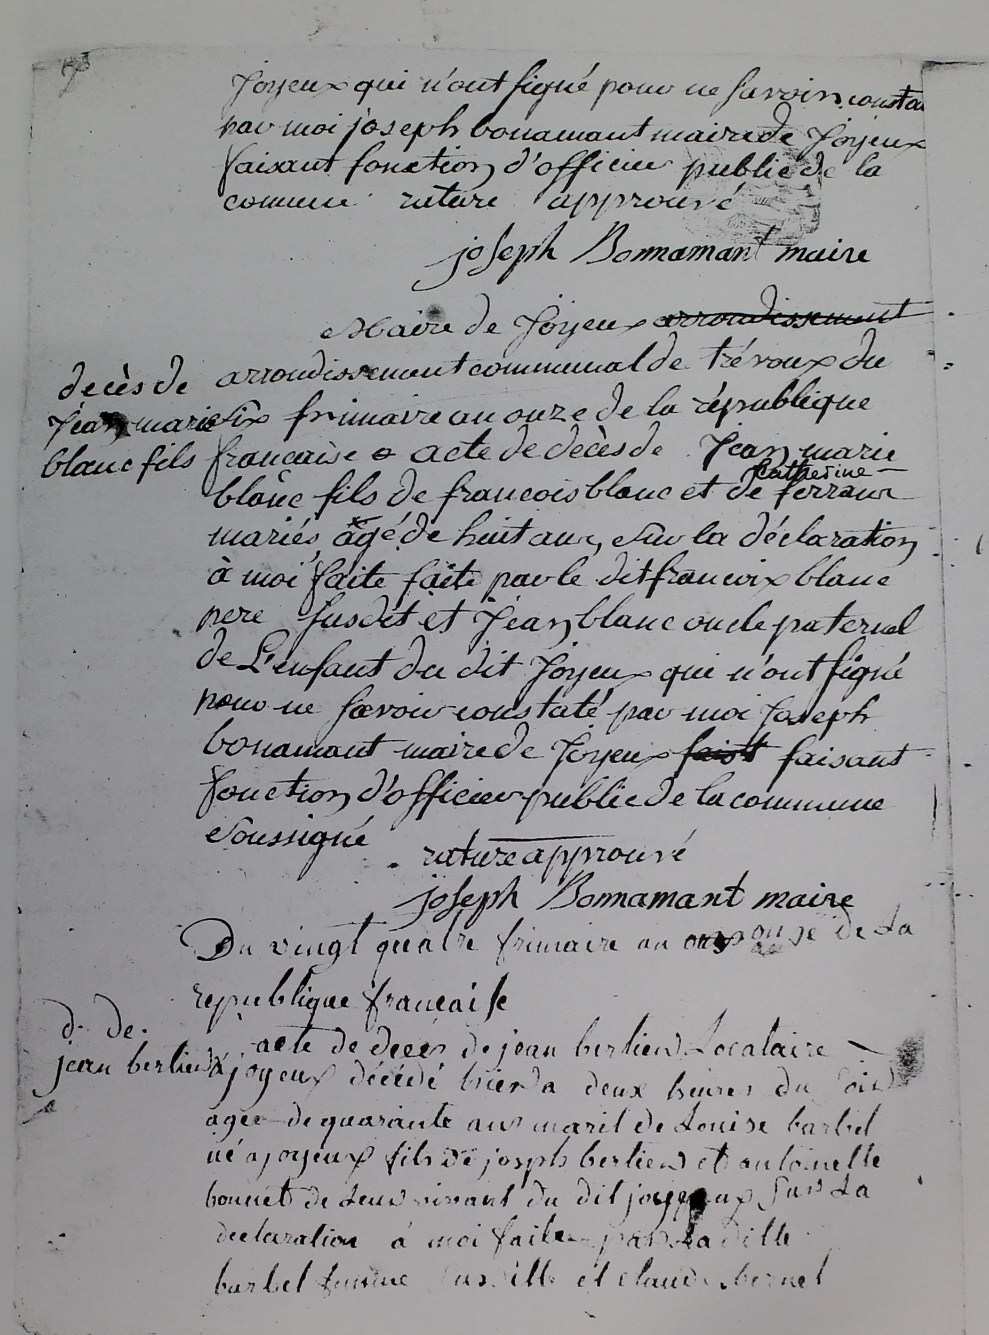 Joyeux qui n'ont signé pour ne savoir, consta
par moi joseph bonamant maire de Joyeux
faisant fonction d'officier public de la
comune rature approuvé
joseph Bonnamant maire
Maire de Joyeux arrondissement
arrondissement communal de trévoux du
six frimaire an onze de la république
francaise acte de décès de Jean marie
decès de
Jean marie
blanc fils
blanc fils de francois blanc et de catherine ferrand
mariés âgé de huit ans, sur la déclaration
à moi faite faite par le dit francoix blanc
pere susdit et Jean blanc oncle paternel
de L'enfant du dit Joyeux qui n'ont signé
pour ne savoir constaté par moi Joseph
bonamant maire de Joyeux faist faisant
fonction d'officier public de la commune
soussigné
rature approuvé
joseph Bonnamant maire
Du vingt quatre frimaire an onze de La
republique francaise
d. de.
jean berlier
acte de deces de jean berlier Locataire
à joyeux décédé hier a deux heures du soir
agee de quarante ans maril de Louise barbel
né a joyeux fils de joseph berlier et antoinette
bonnet de Leur vivant du dit joyeux sur La
declaration à moi faite par La ditte
barbel femme susditte et claude bernel